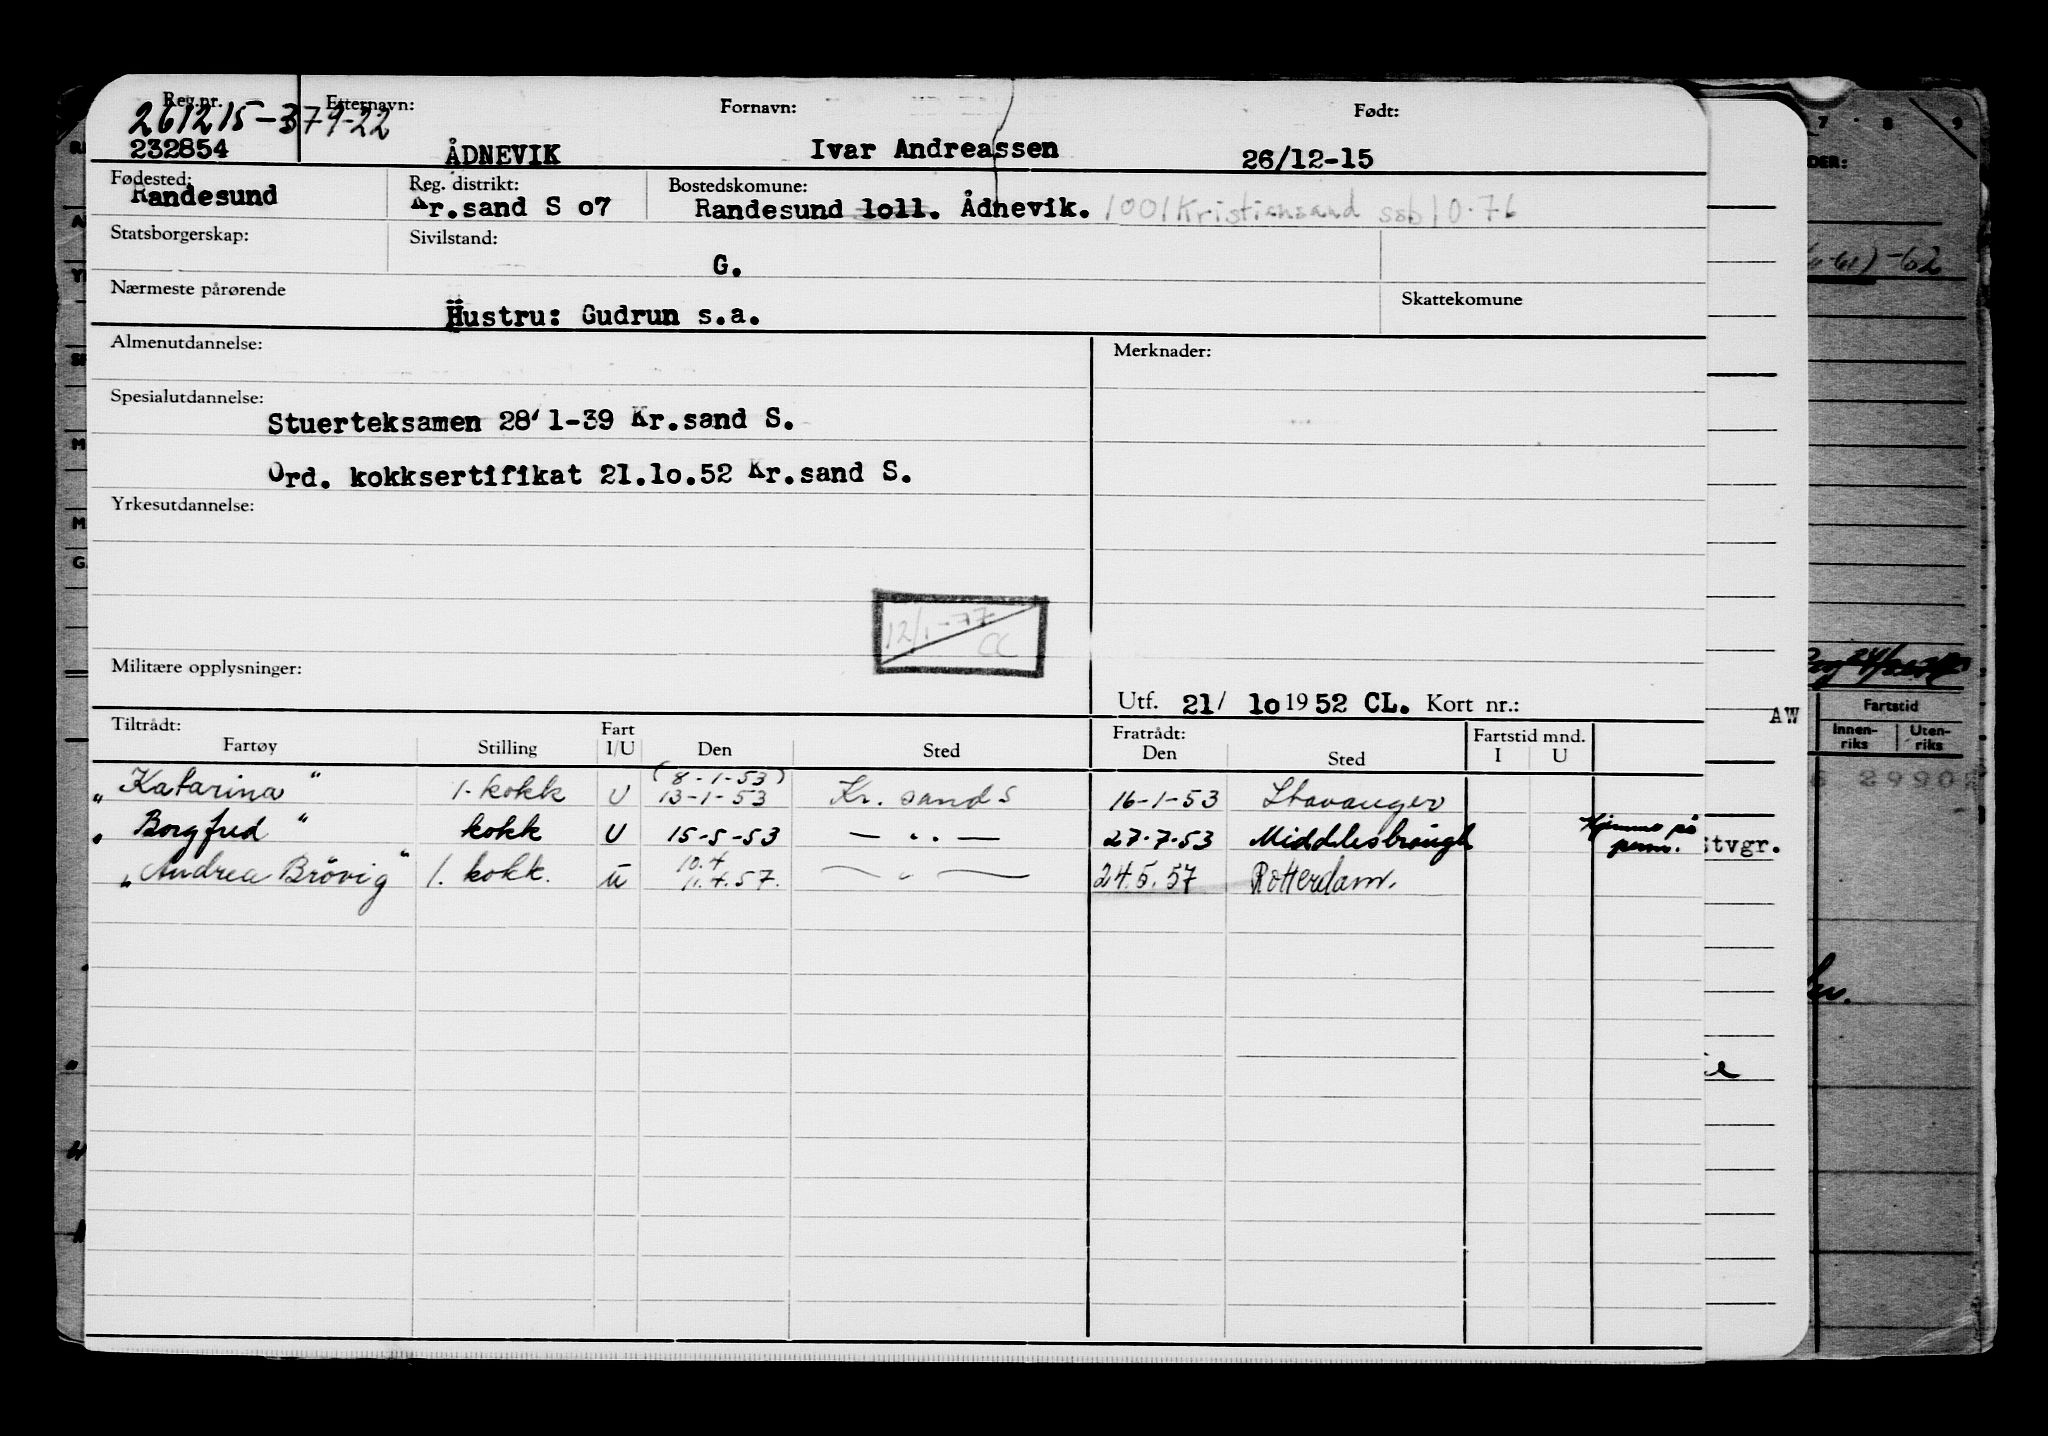 Reg.nr. Etternavn: Fornavn: Født:
261215-379-22
232854 ÅDNEVIK Ivar Andreassen 26/12-15
Fødested: Reg. distrikt: Bostedskomune:
Randesund Kr.sand S o7 Randesund loll. Ådnevik. 1001 Kristiansand ssb 10.76
Statsborgerskap: Sivilstand:
G.
Nærmeste pårørende Skattekomune
Hustru: Gudrun s.a.
Almenutdannelse: Merknader:
Spesialutdannelse:
Stuerteksamen 28/1-39 Kr.sand S.
Ord. kokksertifikat 21.lo.52 Kr.sand S.
Yrkesutdannelse:
12/1-77
CC
Militære opplysninger:
Utf. 21/ lo 1952 CL. Kort nr.:
Tiltrådt: Fart Fratrådt: Fartstid mnd.
Fartøy Stilling I/U Den Sted Den Sted I U
(8-1-53)
"Katarina" 1. kokk U 13-1-53 Kr. sand S 16-1-53 Stavanger
"Borgfred" kokk U 15-5-53 — " — 27-7-53 Middlesbrough Hjemme på perm.
10.4
"Andrea Brövig" 1. kokk. u 11.4.57. — " — 24.5.57 Rotterdam.
AW
stvgr.
7 8 9
DER:
-62
Fartstid
Innen-riks Uten-riks
29902